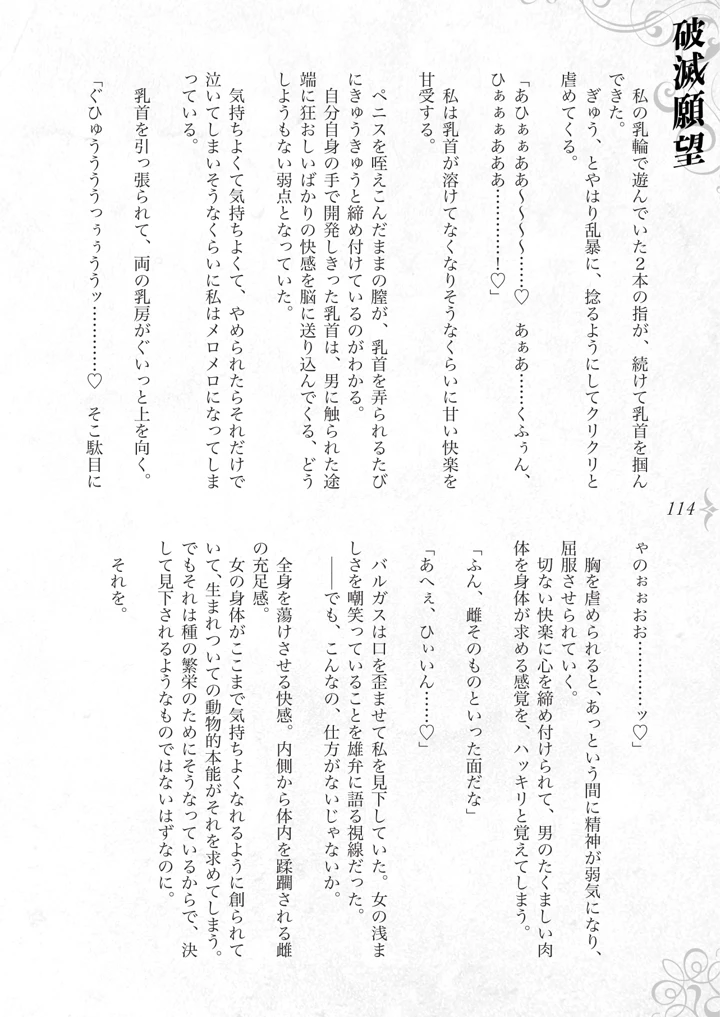 破滅願望
　私の乳輪で遊んでいた2本の指が、続けて乳首を掴ん
できた。
　ぎゅう、とやはり乱暴に、捻るようにしてクリクリと
虐めてくる。
「あひぁぁああ〜〜〜〜……♡　あぁあ……くふぅん、
ひぁぁぁあああ…………！♡」
　私は乳首が溶けてなくなりそうなくらいに甘い快楽を
甘受する。
　ペニスを咥えこんだままの膣が、乳首を弄られるたび
にきゅうきゅうと締め付けているのがわかる。
　自分自身の手で開発しきった乳首は、男に触られた途
端に狂おしいばかりの快感を脳に送り込んでくる、どう
しようもない弱点となっていた。
　気持ちよくて気持ちよくて、やめられたらそれだけで
泣いてしまいそうなくらいに私はメロメロになってしま
っている。
　乳首を引っ張られて、両の乳房がぐいっと上を向く。
「ぐひゅうううっぅぅううッ…………♡　そこ駄目に
114
ゃのぉぉおお…………ッ♡」
　胸を虐められると、あっという間に精神が弱気になり、
屈服させられていく。
　切ない快楽に心を締め付けられて、男のたくましい肉
体を身体が求める感覚を、ハッキリと覚えてしまう。
「ふん、雌そのものといった面だな」
「あへぇ、ひぃいん……♡」
　バルガスは口を歪ませて私を見下していた。女の浅ま
しさを嘲笑っていることを雄弁に語る視線だった。
　――でも、こんなの、仕方がないじゃないか。
　全身を蕩けさせる快感。内側から体内を蹂躙される雌
の充足感。
　女の身体がここまで気持ちよくなれるように創られて
いて、生まれついての動物的本能がそれを求めてしまう。
でもそれは種の繁栄のためにそうなっているからで、決
して見下されるようなものではないはずなのに。
　それを。